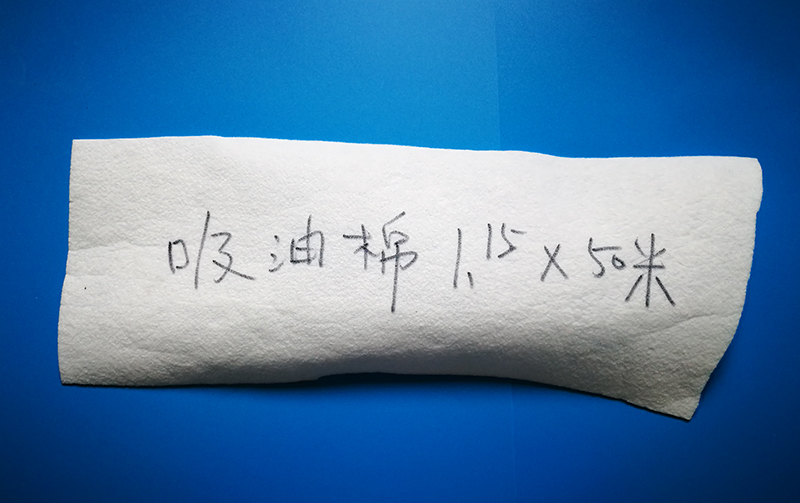 吸油棉 1.15×50米